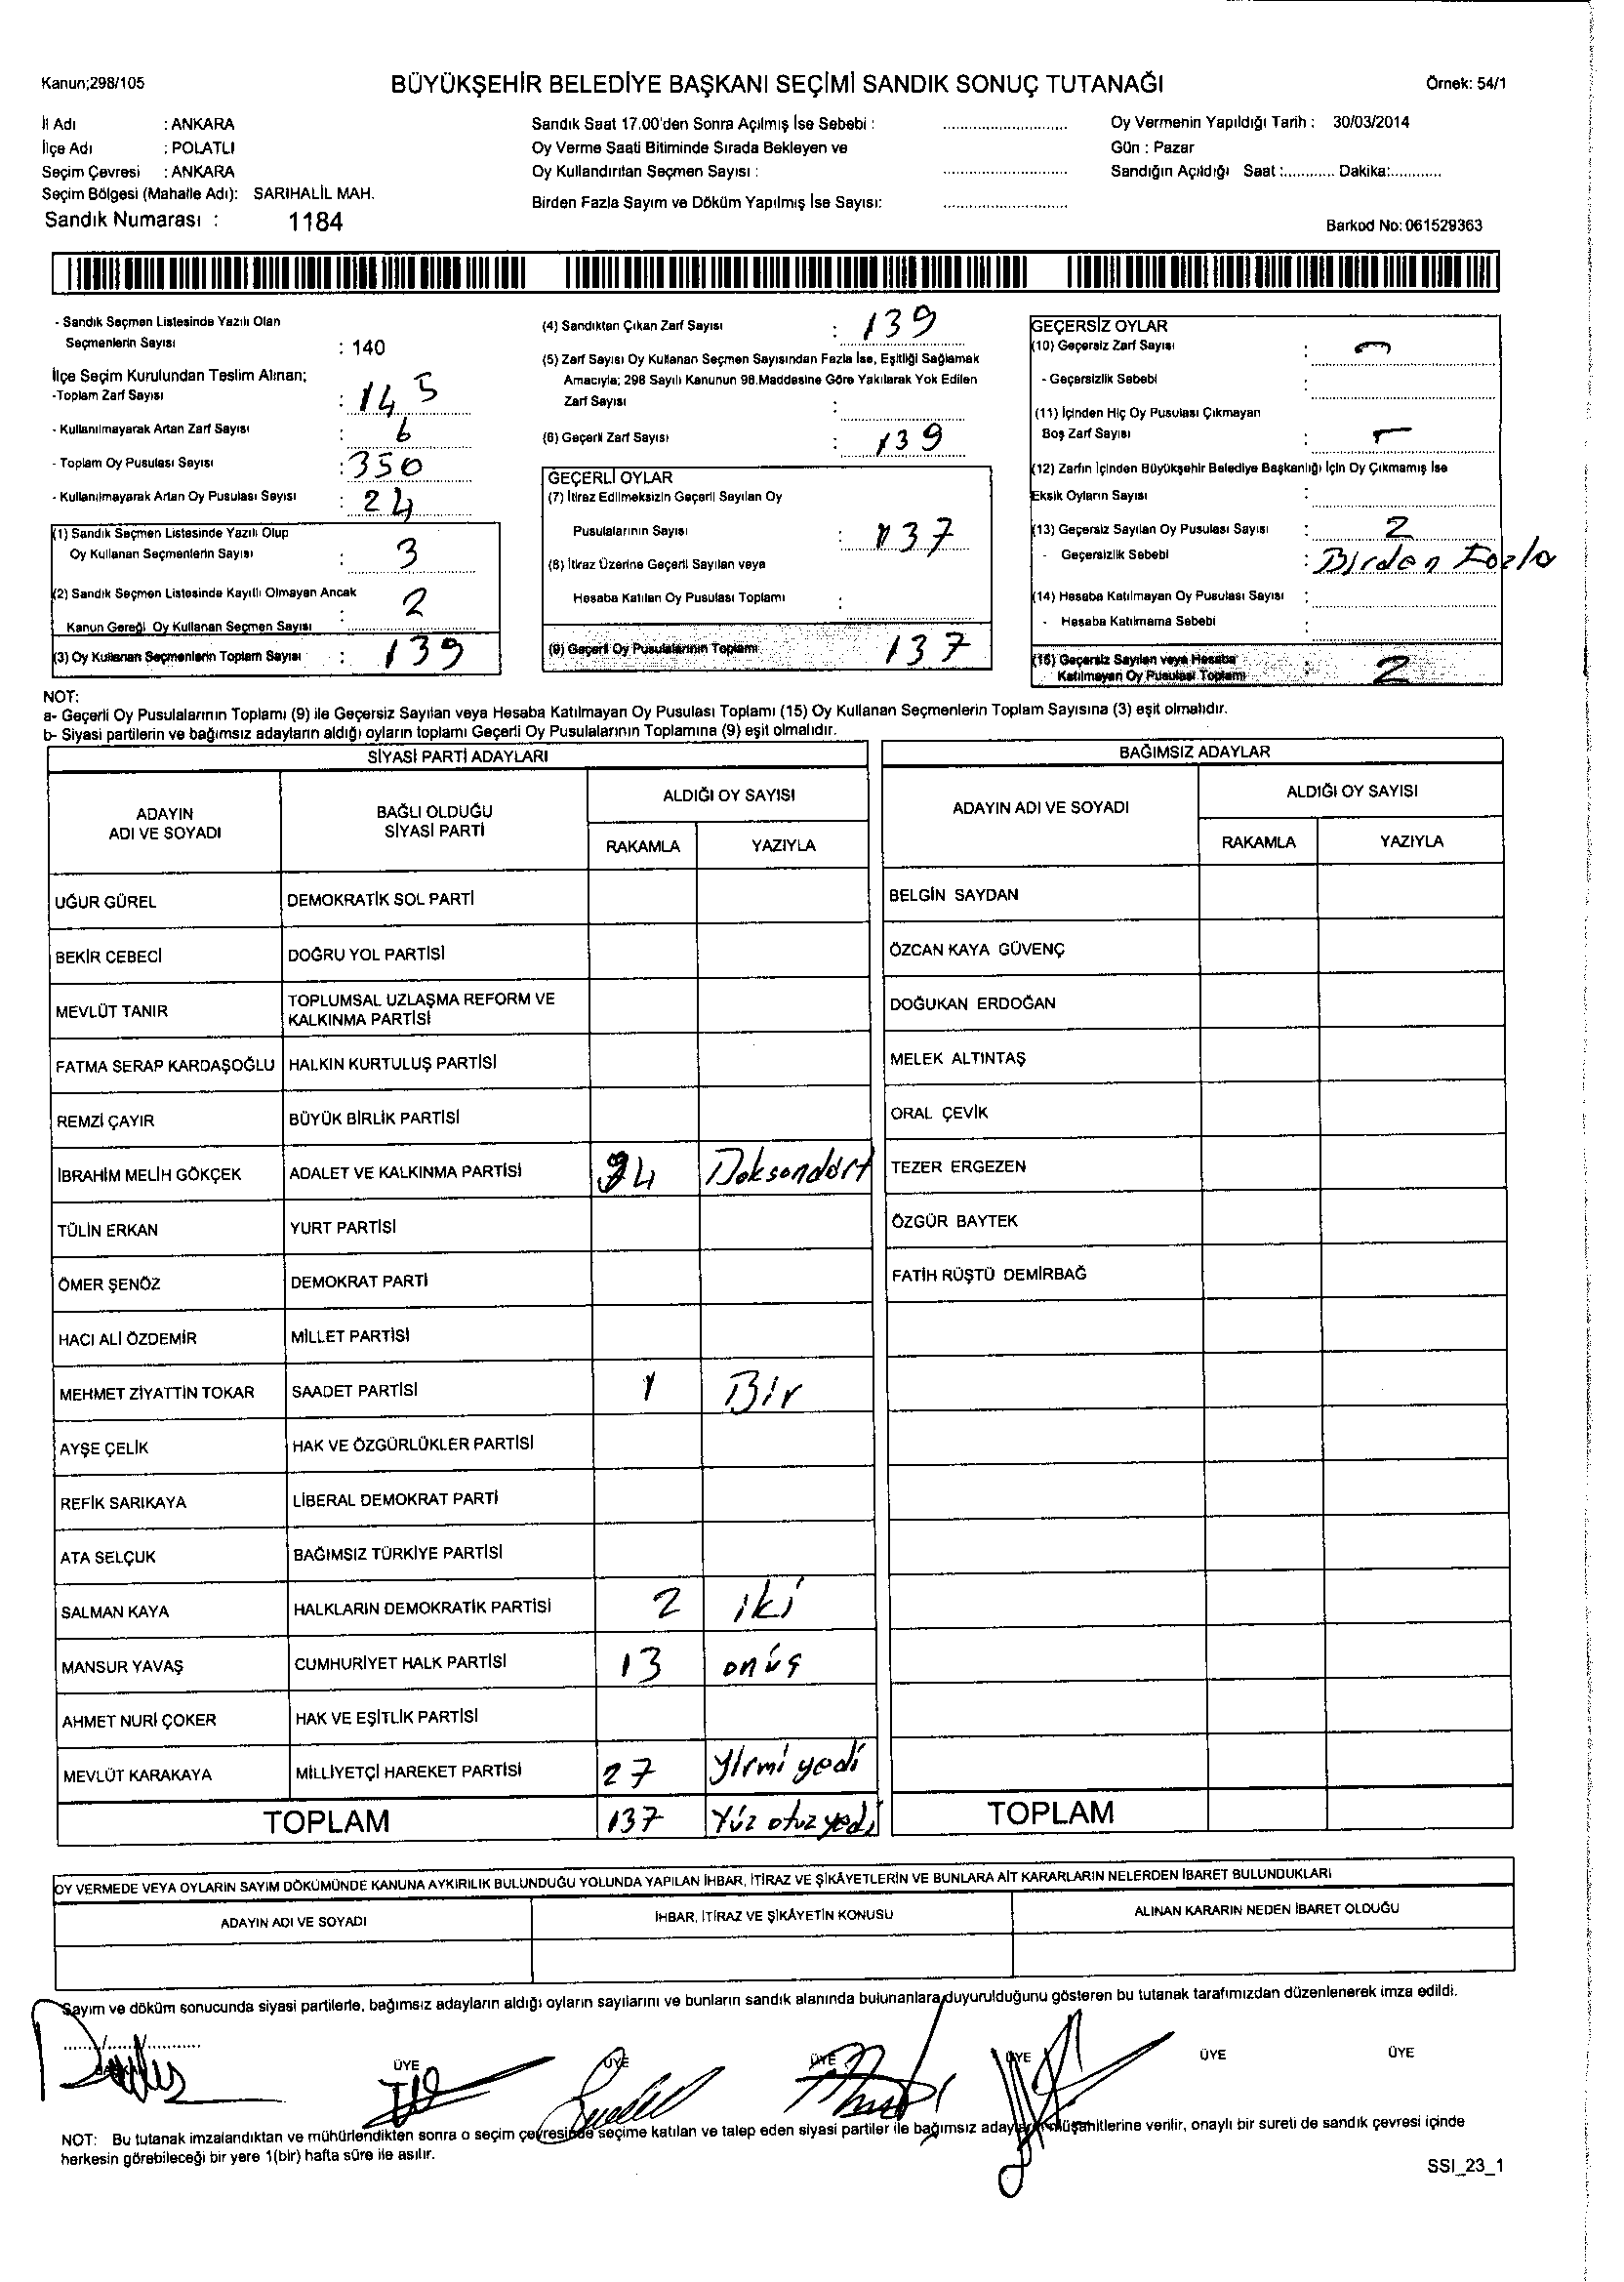 Kanun;298/105
BÜYÜKŞEHİR BELEDİYE BAŞKANI SEÇİMİ SANDIK SONUÇ TUTANAĞI
Örnek: 54/1
İl Adı : ANKARA
İlçe Adı : POLATLI
Seçim Çevresi : ANKARA
Seçim Bölgesi (Mahalle Adı): SARIHALİL MAH.
Sandık Numarası : 1184
Sandık Saat 17.00'den Sonra Açılmış İse Sebebi :
Oy Verme Saati Bitiminde Sırada Bekleyen ve
Oy Kullandırılan Seçmen Sayısı :
Birden Fazla Sayım ve Döküm Yapılmış İse Sayısı:
Oy Vermenin Yapıldığı Tarih : 30/03/2014
Gün : Pazar
Sandığın Açıldığı Saat :............ Dakika:............
Barkod No: 061529363
- Sandık Seçmen Listesinde Yazılı Olan
Seçmenlerin Sayısı : 140
İlçe Seçim Kurulundan Teslim Alınan;
-Toplam Zarf Sayısı : 145
- Kullanılmayarak Artan Zarf Sayısı : 6
- Toplam Oy Pusulası Sayısı : 350
- Kullanılmayarak Artan Oy Pusulası Sayısı : 24
(1) Sandık Seçmen Listesinde Yazılı Olup
Oy Kullanan Seçmenlerin Sayısı : 3
(2) Sandık Seçmen Listesinde Kayıtlı Olmayan Ancak
Kanun Gereği Oy Kullanan Seçmen Sayısı : 2
(3) Oy Kullanan Seçmenlerin Toplam Sayısı : 139
(4) Sandıktan Çıkan Zarf Sayısı : 139
(5) Zarf Sayısı Oy Kullanan Seçmen Sayısından Fazla İse, Eşitliği Sağlamak
Amacıyla; 298 Sayılı Kanunun 98.Maddesine Göre Yakılarak Yok Edilen
Zarf Sayısı :
(6) Geçerli Zarf Sayısı : 139
GEÇERLİ OYLAR
(7) İtiraz Edilmeksizin Geçerli Sayılan Oy
Pusulalarının Sayısı : 137
(8) İtiraz Üzerine Geçerli Sayılan veya
Hesaba Katılan Oy Pusulası Toplamı :
(9) Geçerli Oy Pusulalarının Toplamı 137
GEÇERSİZ OYLAR
(10) Geçersiz Zarf Sayısı : -
- Geçersizlik Sebebi :
(11) İçinden Hiç Oy Pusulası Çıkmayan
Boş Zarf Sayısı : -
(12) Zarfın İçinden Büyükşehir Belediye Başkanlığı İçin Oy Çıkmamış İse
Eksik Oyların Sayısı :
(13) Geçersiz Sayılan Oy Pusulası Sayısı : 2
- Geçersizlik Sebebi : Birden Fazla
(14) Hesaba Katılmayan Oy Pusulası Sayısı :
- Hesaba Katılmama Sebebi :
(15) Geçersiz Sayılan veya Hesaba
Katılmayan Oy Pusulası Toplamı : 2
NOT:
a- Geçerli Oy Pusulalarının Toplamı (9) ile Geçersiz Sayılan veya Hesaba Katılmayan Oy Pusulası Toplamı (15) Oy Kullanan Seçmenlerin Toplam Sayısına (3) eşit olmalıdır.
b- Siyasi partilerin ve bağımsız adayların aldığı oyların toplamı Geçerli Oy Pusulalarının Toplamına (9) eşit olmalıdır.
SİYASİ PARTİ ADAYLARI
ADAYIN
ADI VE SOYADI
BAĞLI OLDUĞU
SİYASİ PARTİ
ALDIĞI OY SAYISI
RAKAMLA YAZIYLA
UĞUR GÜREL DEMOKRATİK SOL PARTİ
BEKİR CEBECİ DOĞRU YOL PARTİSİ
MEVLÜT TANIR TOPLUMSAL UZLAŞMA REFORM VE
KALKINMA PARTİSİ
FATMA SERAP KARDAŞOĞLU HALKIN KURTULUŞ PARTİSİ
REMZİ ÇAYIR BÜYÜK BİRLİK PARTİSİ
İBRAHİM MELİH GÖKÇEK ADALET VE KALKINMA PARTİSİ 94 Doksandört
TÜLİN ERKAN YURT PARTİSİ
ÖMER ŞENÖZ DEMOKRAT PARTİ
HACI ALİ ÖZDEMİR MİLLET PARTİSİ
MEHMET ZİYATTİN TOKAR SAADET PARTİSİ 1 Bir
AYŞE ÇELİK HAK VE ÖZGÜRLÜKLER PARTİSİ
REFİK SARIKAYA LİBERAL DEMOKRAT PARTİ
ATA SELÇUK BAĞIMSIZ TÜRKİYE PARTİSİ
SALMAN KAYA HALKLARIN DEMOKRATİK PARTİSİ 2 iki
MANSUR YAVAŞ CUMHURİYET HALK PARTİSİ 13 onüç
AHMET NURİ ÇOKER HAK VE EŞİTLİK PARTİSİ
MEVLÜT KARAKAYA MİLLİYETÇİ HAREKET PARTİSİ 27 Yirmi yedi
TOPLAM 137 Yüz otuz yedi
BAĞIMSIZ ADAYLAR
ADAYIN ADI VE SOYADI
ALDIĞI OY SAYISI
RAKAMLA YAZIYLA
BELGİN SAYDAN
ÖZCAN KAYA GÜVENÇ
DOĞUKAN ERDOĞAN
MELEK ALTINTAŞ
ORAL ÇEVİK
TEZER ERGEZEN
ÖZGÜR BAYTEK
FATİH RÜŞTÜ DEMİRBAĞ
TOPLAM
OY VERMEDE VEYA OYLARIN SAYIM DÖKÜMÜNDE KANUNA AYKIRILIK BULUNDUĞU YOLUNDA YAPILAN İHBAR, İTİRAZ VE ŞİKÂYETLERİN VE BUNLARA AİT KARARLARIN NELERDEN İBARET BULUNDUKLARI
ADAYIN ADI VE SOYADI İHBAR, İTİRAZ VE ŞİKÂYETİN KONUSU ALINAN KARARIN NEDEN İBARET OLDUĞU
Sayım ve döküm sonucunda siyasi partilerle, bağımsız adayların aldığı oyların sayılarını ve bunların sandık alanında bulunanlara duyurulduğunu gösteren bu tutanak tarafımızdan düzenlenerek imza edildi.
ÜYE ÜYE ÜYE ÜYE ÜYE ÜYE
NOT: Bu tutanak imzalandıktan ve mühürlendikten sonra o seçim çevresinde seçime katılan ve talep eden siyasi partiler ile bağımsız adayların müşahitlerine verilir, onaylı bir sureti de sandık çevresi içinde
herkesin görebileceği bir yere 1(bir) hafta süre ile asılır.
SSI_23_1